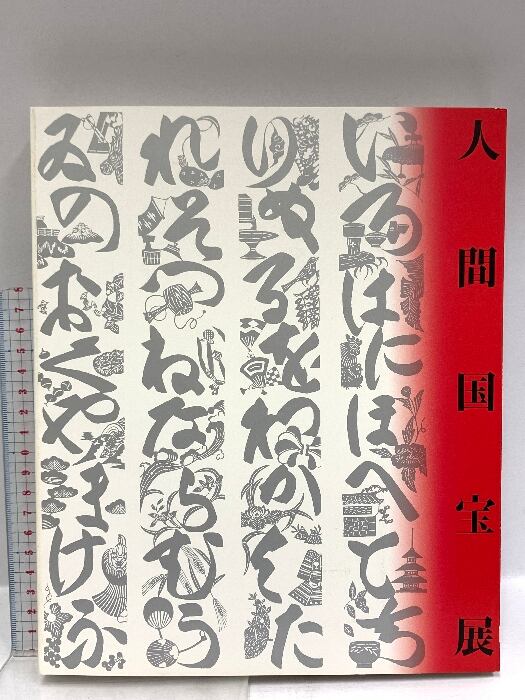 人間国宝展
いろはにほへとち
りぬるをわかよた
れそつねならむう
ゐのおくやまけふ